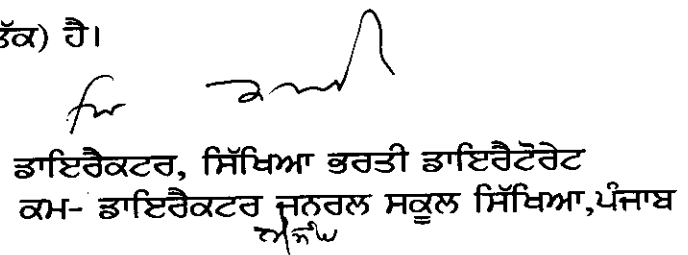 ਤੱਕ) ਹੈ।
for
ਡਾਇਰੈਕਟਰ, ਸਿੱਖਿਆ ਭਰਤੀ ਡਾਇਰੈਟੋਰੇਟ
ਕਮ- ਡਾਇਰੈਕਟਰ ਜਨਰਲ ਸਕੂਲ ਸਿੱਖਿਆ,ਪੰਜਾਬ